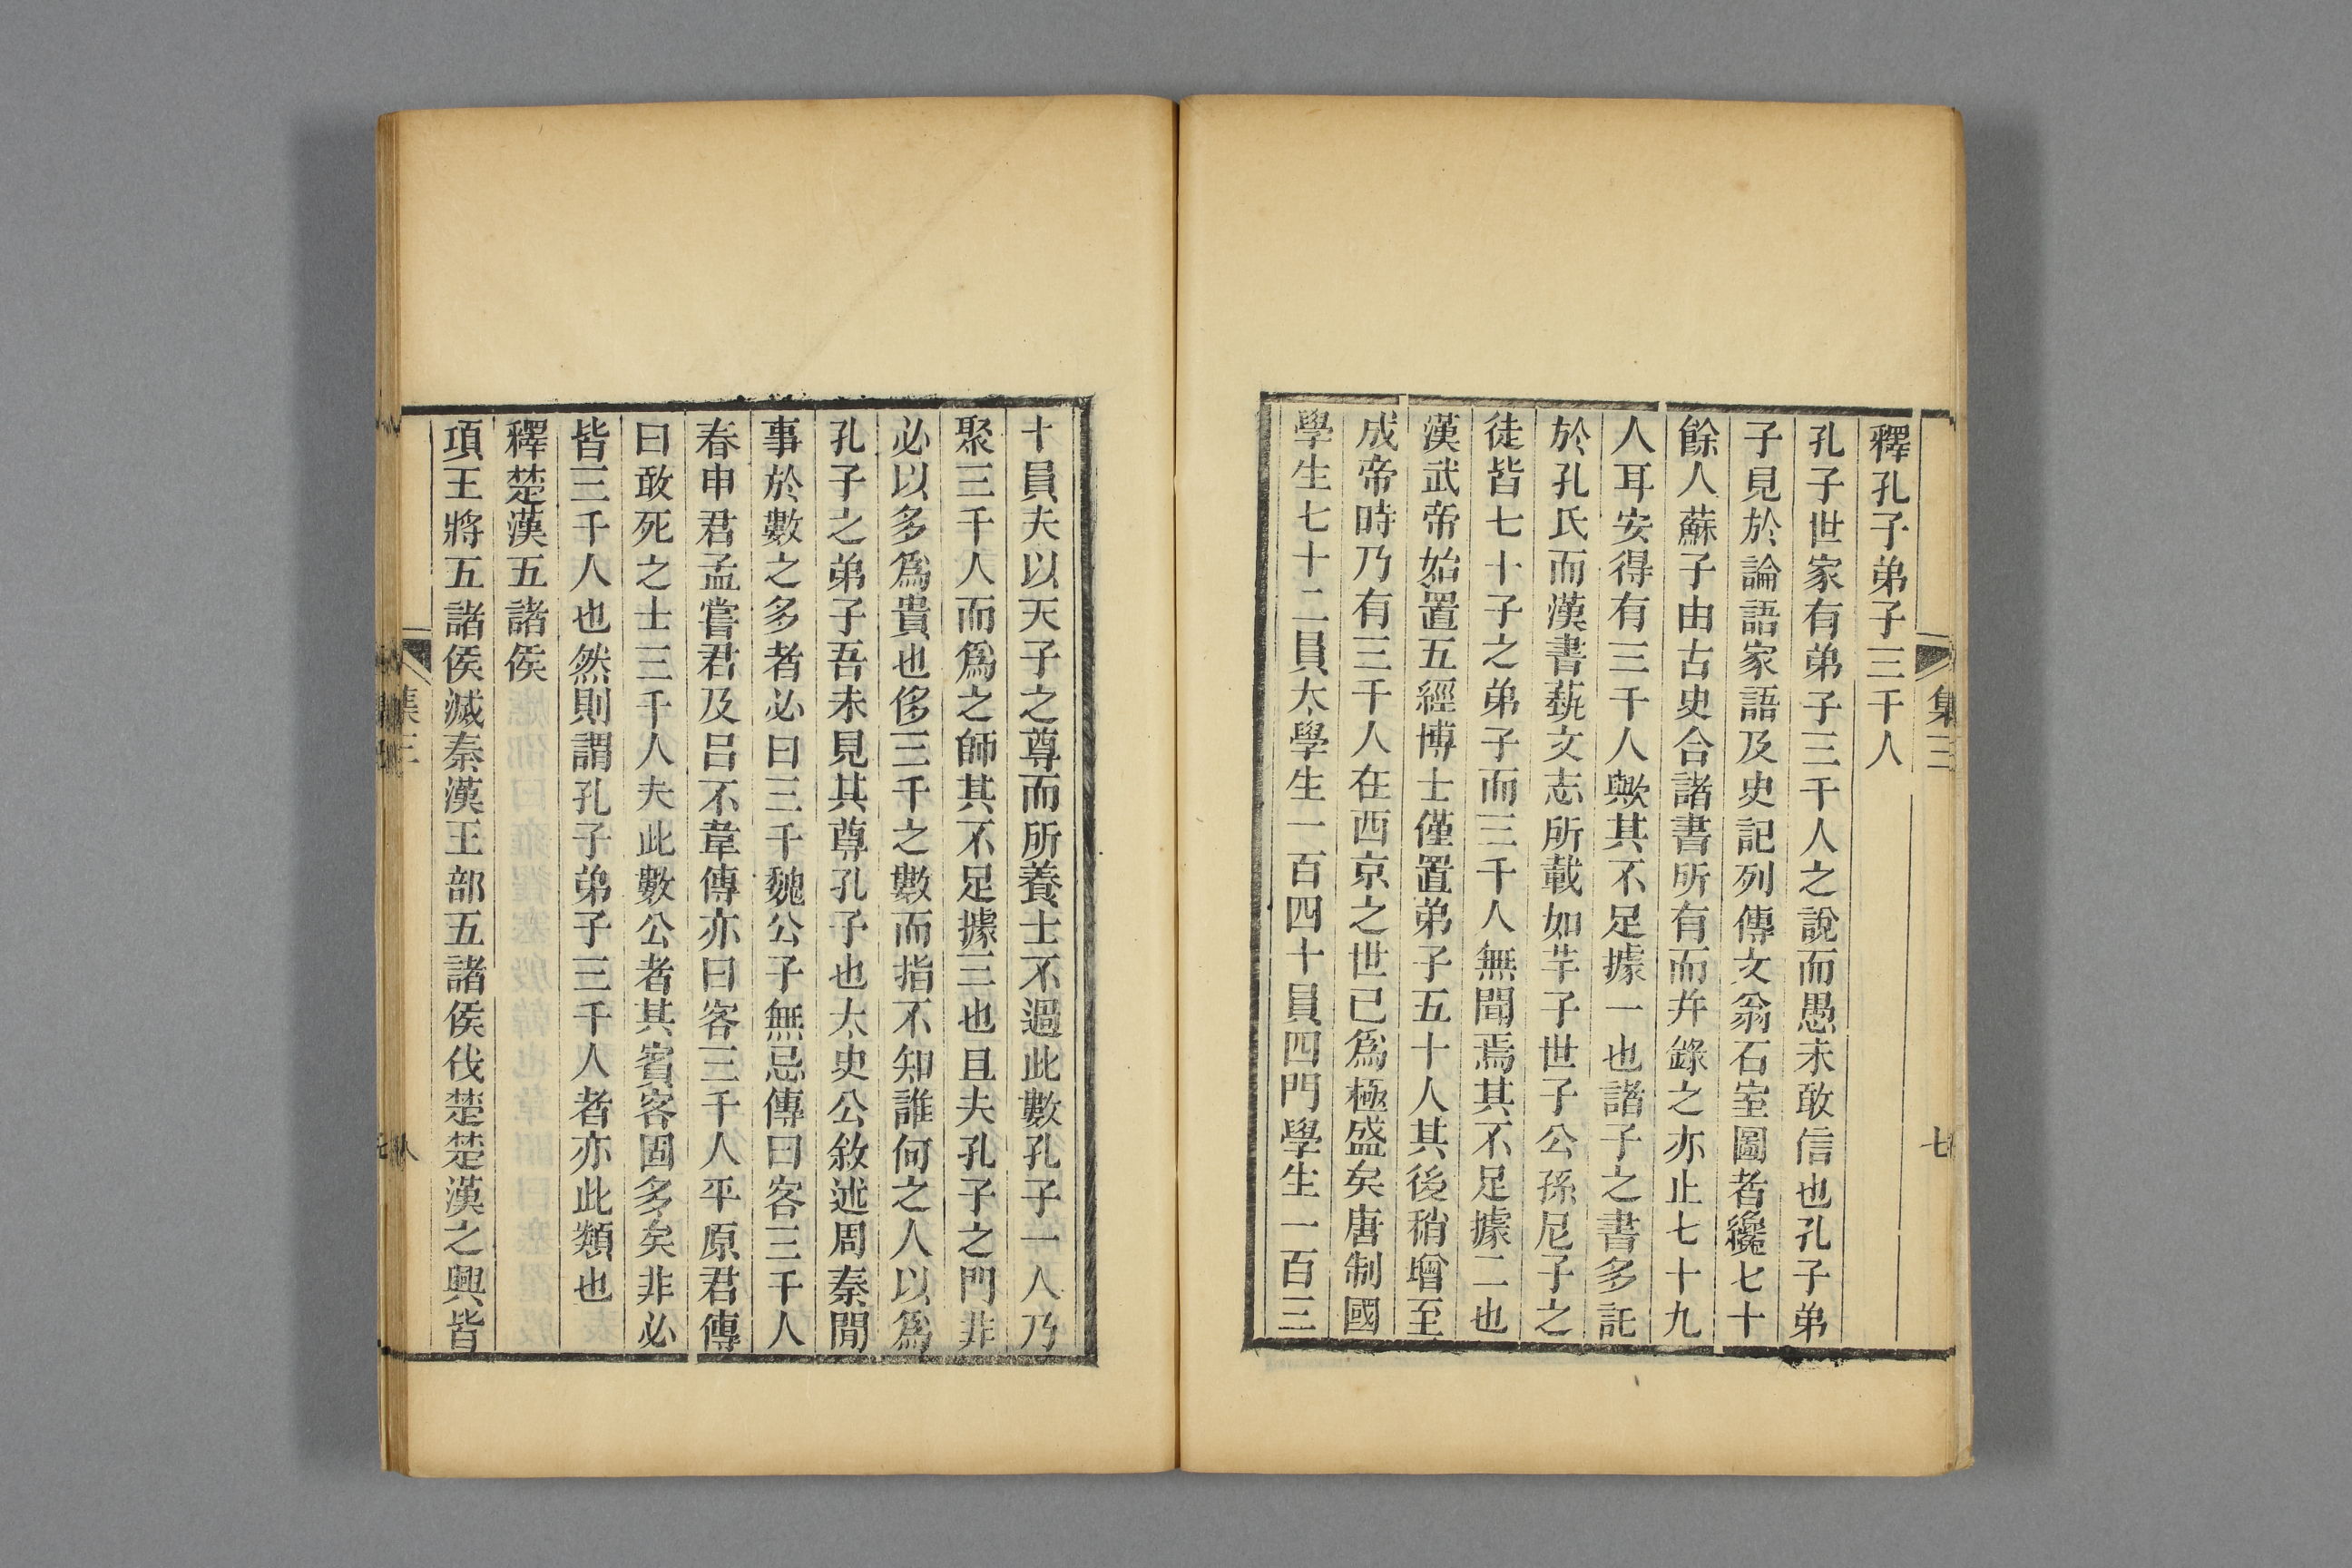 集三
七
釋孔子弟子三千人
孔子世家有弟子三千人之說而愚未敢信也孔子弟
子見於論語家語及史記列傳文翁石室圖者纔七十
餘人蘇子由古史合諸書所有而并錄之亦止七十九
人耳安得有三千人歟其不足據一也諸子之書多託
於孔氏而漢書蓺文志所載如芉子世子公孫尼子之
徒皆七十子之弟子而三千人無聞焉其不足據二也
漢武帝始置五經博士僅置弟子五十人其後稍增至
成帝時乃有三千人在西京之世已爲極盛矣唐制國
學生七十二員太學生一百四十員四門學生一百三
十員夫以天子之尊而所養士不過此數孔子一人乃
聚三千人而爲之師其不足據三也且夫孔子之門非
必以多爲貴也侈三千之數而指不知誰何之人以爲
孔子之弟子吾未見其尊孔子也太史公敘述周秦閒
事於數之多者必曰三千魏公子無忌傳曰客三千人
春申君孟嘗君及呂不韋傳亦曰客三千人平原君傳
曰敢死之士三千人夫此數公者其賓客固多矣非必
皆三千人也然則謂孔子弟子三千人者亦此類也
釋楚漢五諸侯
項王將五諸侯滅秦漢王部五諸侯伐楚楚漢之興皆
集三
八